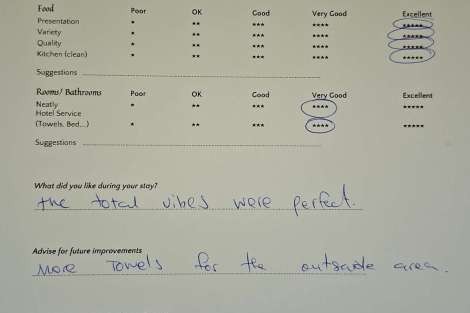 Food Poor OK Good Very Good Excellent
Presentation * ** *** **** *****
Variety * ** *** **** *****
Quality * ** *** **** *****
Kitchen (clean) * ** *** **** *****
Suggestions
Rooms/ Bathrooms Poor OK Good Very Good Excellent
Neatly * ** *** **** *****
Hotel Service
(Towels, Bed,..) * ** *** **** *****
Suggestions
What did you like during your stay?
the total vibes were perfect.
Advise for future improvements
More Towels for the outside area.